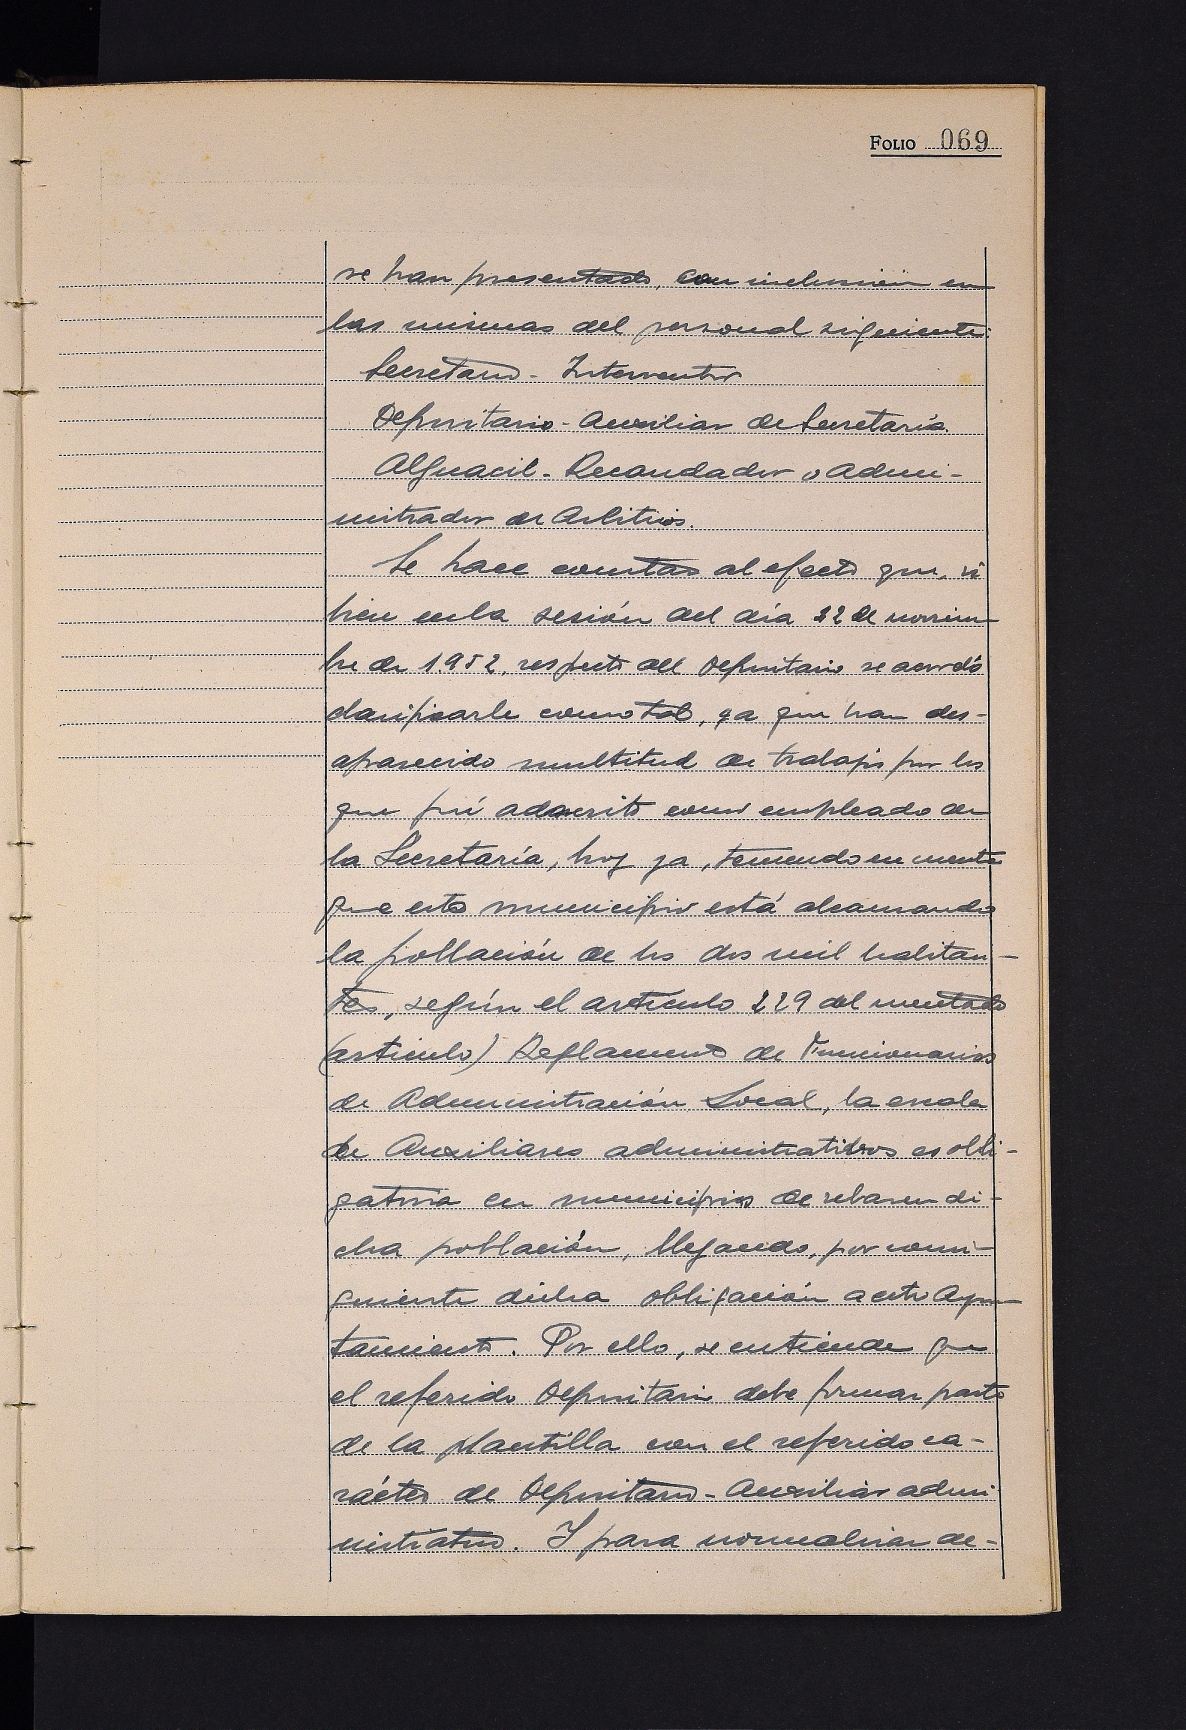 FOLIO 069
se han presentado, con inclusión en
las mismas del personal siguiente:
Secretario - Interventor
Depositario - Auxiliar de Secretaría
Alguacil - Recaudador o Admi-
nistrador de Arbitrios.
Se hace constar al efecto que, si
bien en la sesión del día 22 de noviem-
bre de 1.952, respecto del Depositario se acordó
clasificarle como tal, ya que han des-
aparecido multitud de trabajos por los
que fué adscrito como empleado de
la Secretaría, hoy ya, teniendo en cuenta
que este municipio está alcanzando
la población de los dos mil habitan-
tes, según el artículo 229 del mentado
(artículo) Reglamento de Funcionarios
de Administración Local, la escala
de Auxiliares administrativos es obli-
gatoria en municipios de rebasen di-
cha población, llegando, por consi-
guiente dicha obligación a este Ayun-
tamiento. Por ello, se entiende que
el referido Depositario debe formar parte
de la plantilla con el referido ca-
rácter de Depositario - Auxiliar admi-
nistrativo. Y para normalizar de-